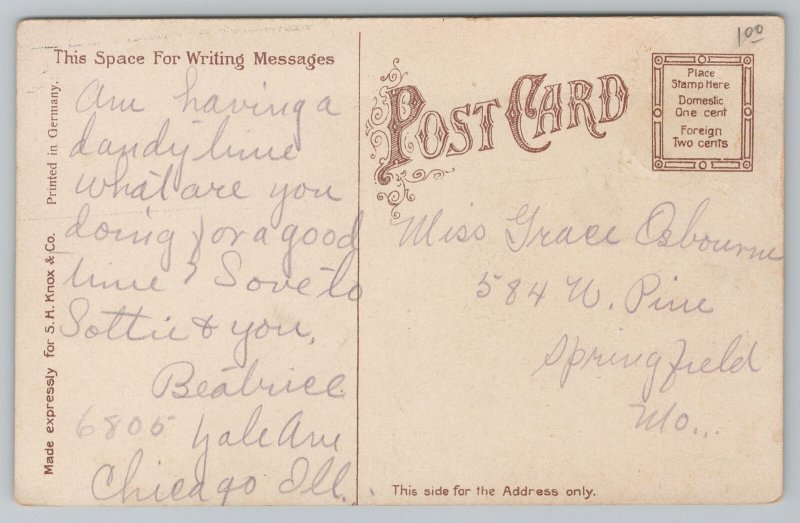 1 00
This Space For Writing Messages
Am having a
dandy time
what are you
doing for a good
time? Love to
Lottie & you,
Beatrice
6805 Yale Ave
Chicago Ill.
Printed in Germany.
Made expressly for S. H. Knox & Co.
POST CARD
Place
Stamp Here
Domestic
One cent
Foreign
Two cents
Miss Grace Osbourne
584 W. Pine
Springfield
Mo...
This side for the Address only.